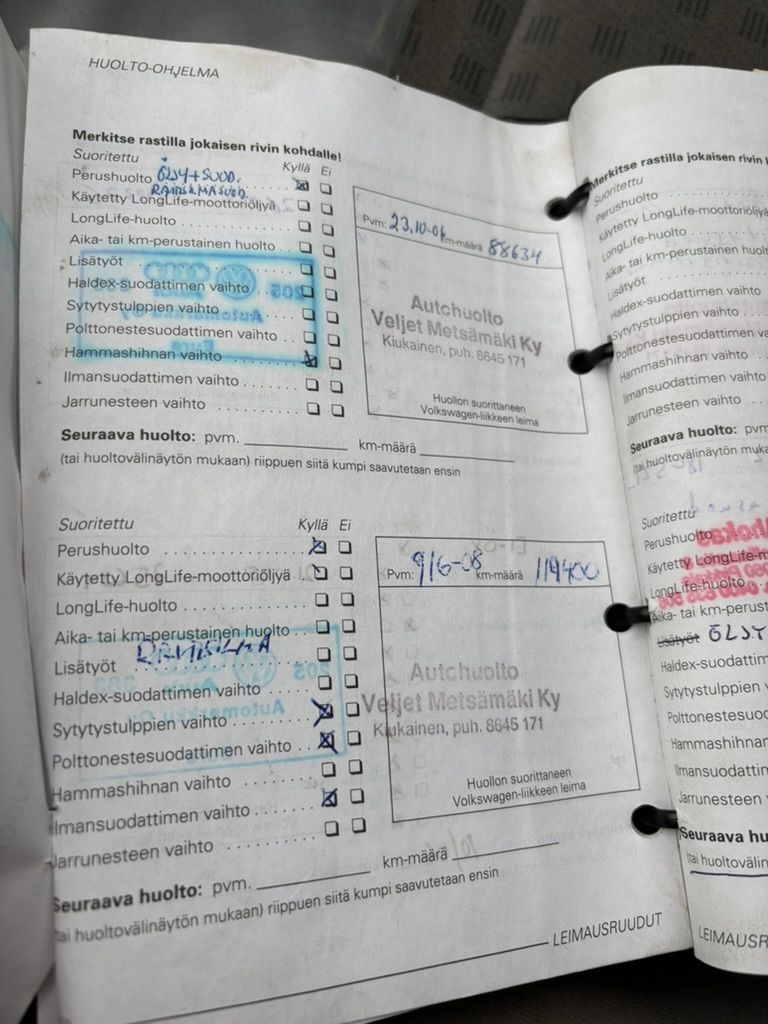 HUOLTO-OHJELMA
Merkitse rastilla jokaisen rivin kohdalle!
Suoritettu Kyllä Ei
Perushuolto ÖLJY+SUOD.
RAITISILMASUOD.
Käytetty LongLife-moottoriöljyä
LongLife-huolto
Aika- tai km-perustainen huolto
Lisätyöt
Haldex-suodattimen vaihto
Sytytystulppien vaihto
Polttonestesuodattimen vaihto
Hammashihnan vaihto
Ilmansuodattimen vaihto
Jarrunesteen vaihto
Pvm: 23.10-06 km-määrä 88634
Autohuolto
Veljet Metsämäki Ky
Kiukainen, puh. 8645 171
Huollon suorittaneen
Volkswagen-liikkeen leima
Seuraava huolto: pvm. km-määrä
(tai huoltovälinäytön mukaan) riippuen siitä kumpi saavutetaan ensin
Suoritettu Kyllä Ei
Perushuolto
Käytetty LongLife-moottoriöljyä
LongLife-huolto
Aika- tai km-perustainen huolto
Lisätyöt
Haldex-suodattimen vaihto
Sytytystulppien vaihto
Polttonestesuodattimen vaihto
Hammashihnan vaihto
Ilmansuodattimen vaihto
Jarrunesteen vaihto
Pvm: 9/6-08 km-määrä 119400
Autohuolto
Veljet Metsämäki Ky
Kiukainen, puh. 8645 171
Huollon suorittaneen
Volkswagen-liikkeen leima
Seuraava huolto: pvm. km-määrä
(tai huoltovälinäytön mukaan) riippuen siitä kumpi saavutetaan ensin
LEIMAUSRUUDUT
Merkitse rastilla jokaisen rivin
Suoritettu
Perushuolto
Käytetty LongLife-moottoriöljyä
LongLife-huolto
Aika- tai km-perustainen huolt
Lisätyöt
Haldex-suodattimen vaihto
Sytytystulppien vaihto
Polttonestesuodattimen va
Hammashihnan vaihto
Ilmansuodattimen vaihto
Jarrunesteen vaihto
Seuraava huolto: pvm
(tai huoltovälinäytön muka
Suoritettu
Perushuolto
Käytetty LongLife-m
LongLife-huolto
Aika- tai km-perust
Lisätyöt ÖLJY
Haldex-suodattim
Sytytystulppien v
Polttonestesuod
Hammashihnan
Ilmansuodattin
Jarrunesteen
Seuraava hu
(tai huoltovälin
LEIMAUSR